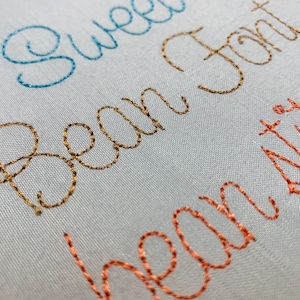 Sweet
Bean Font
bean